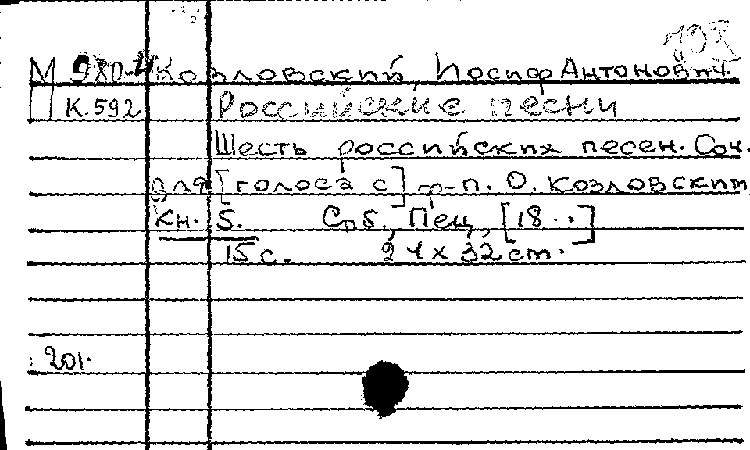 М 980-4 Козловский, Иосиф Антонович.
К.592 Российские песни
Шесть российских песен. Соч.
для [голоса с] ф-п. О. Козловским
Кн. 5. Спб., Пец, [18..]
15 с. 24 х 32 cm.
201.